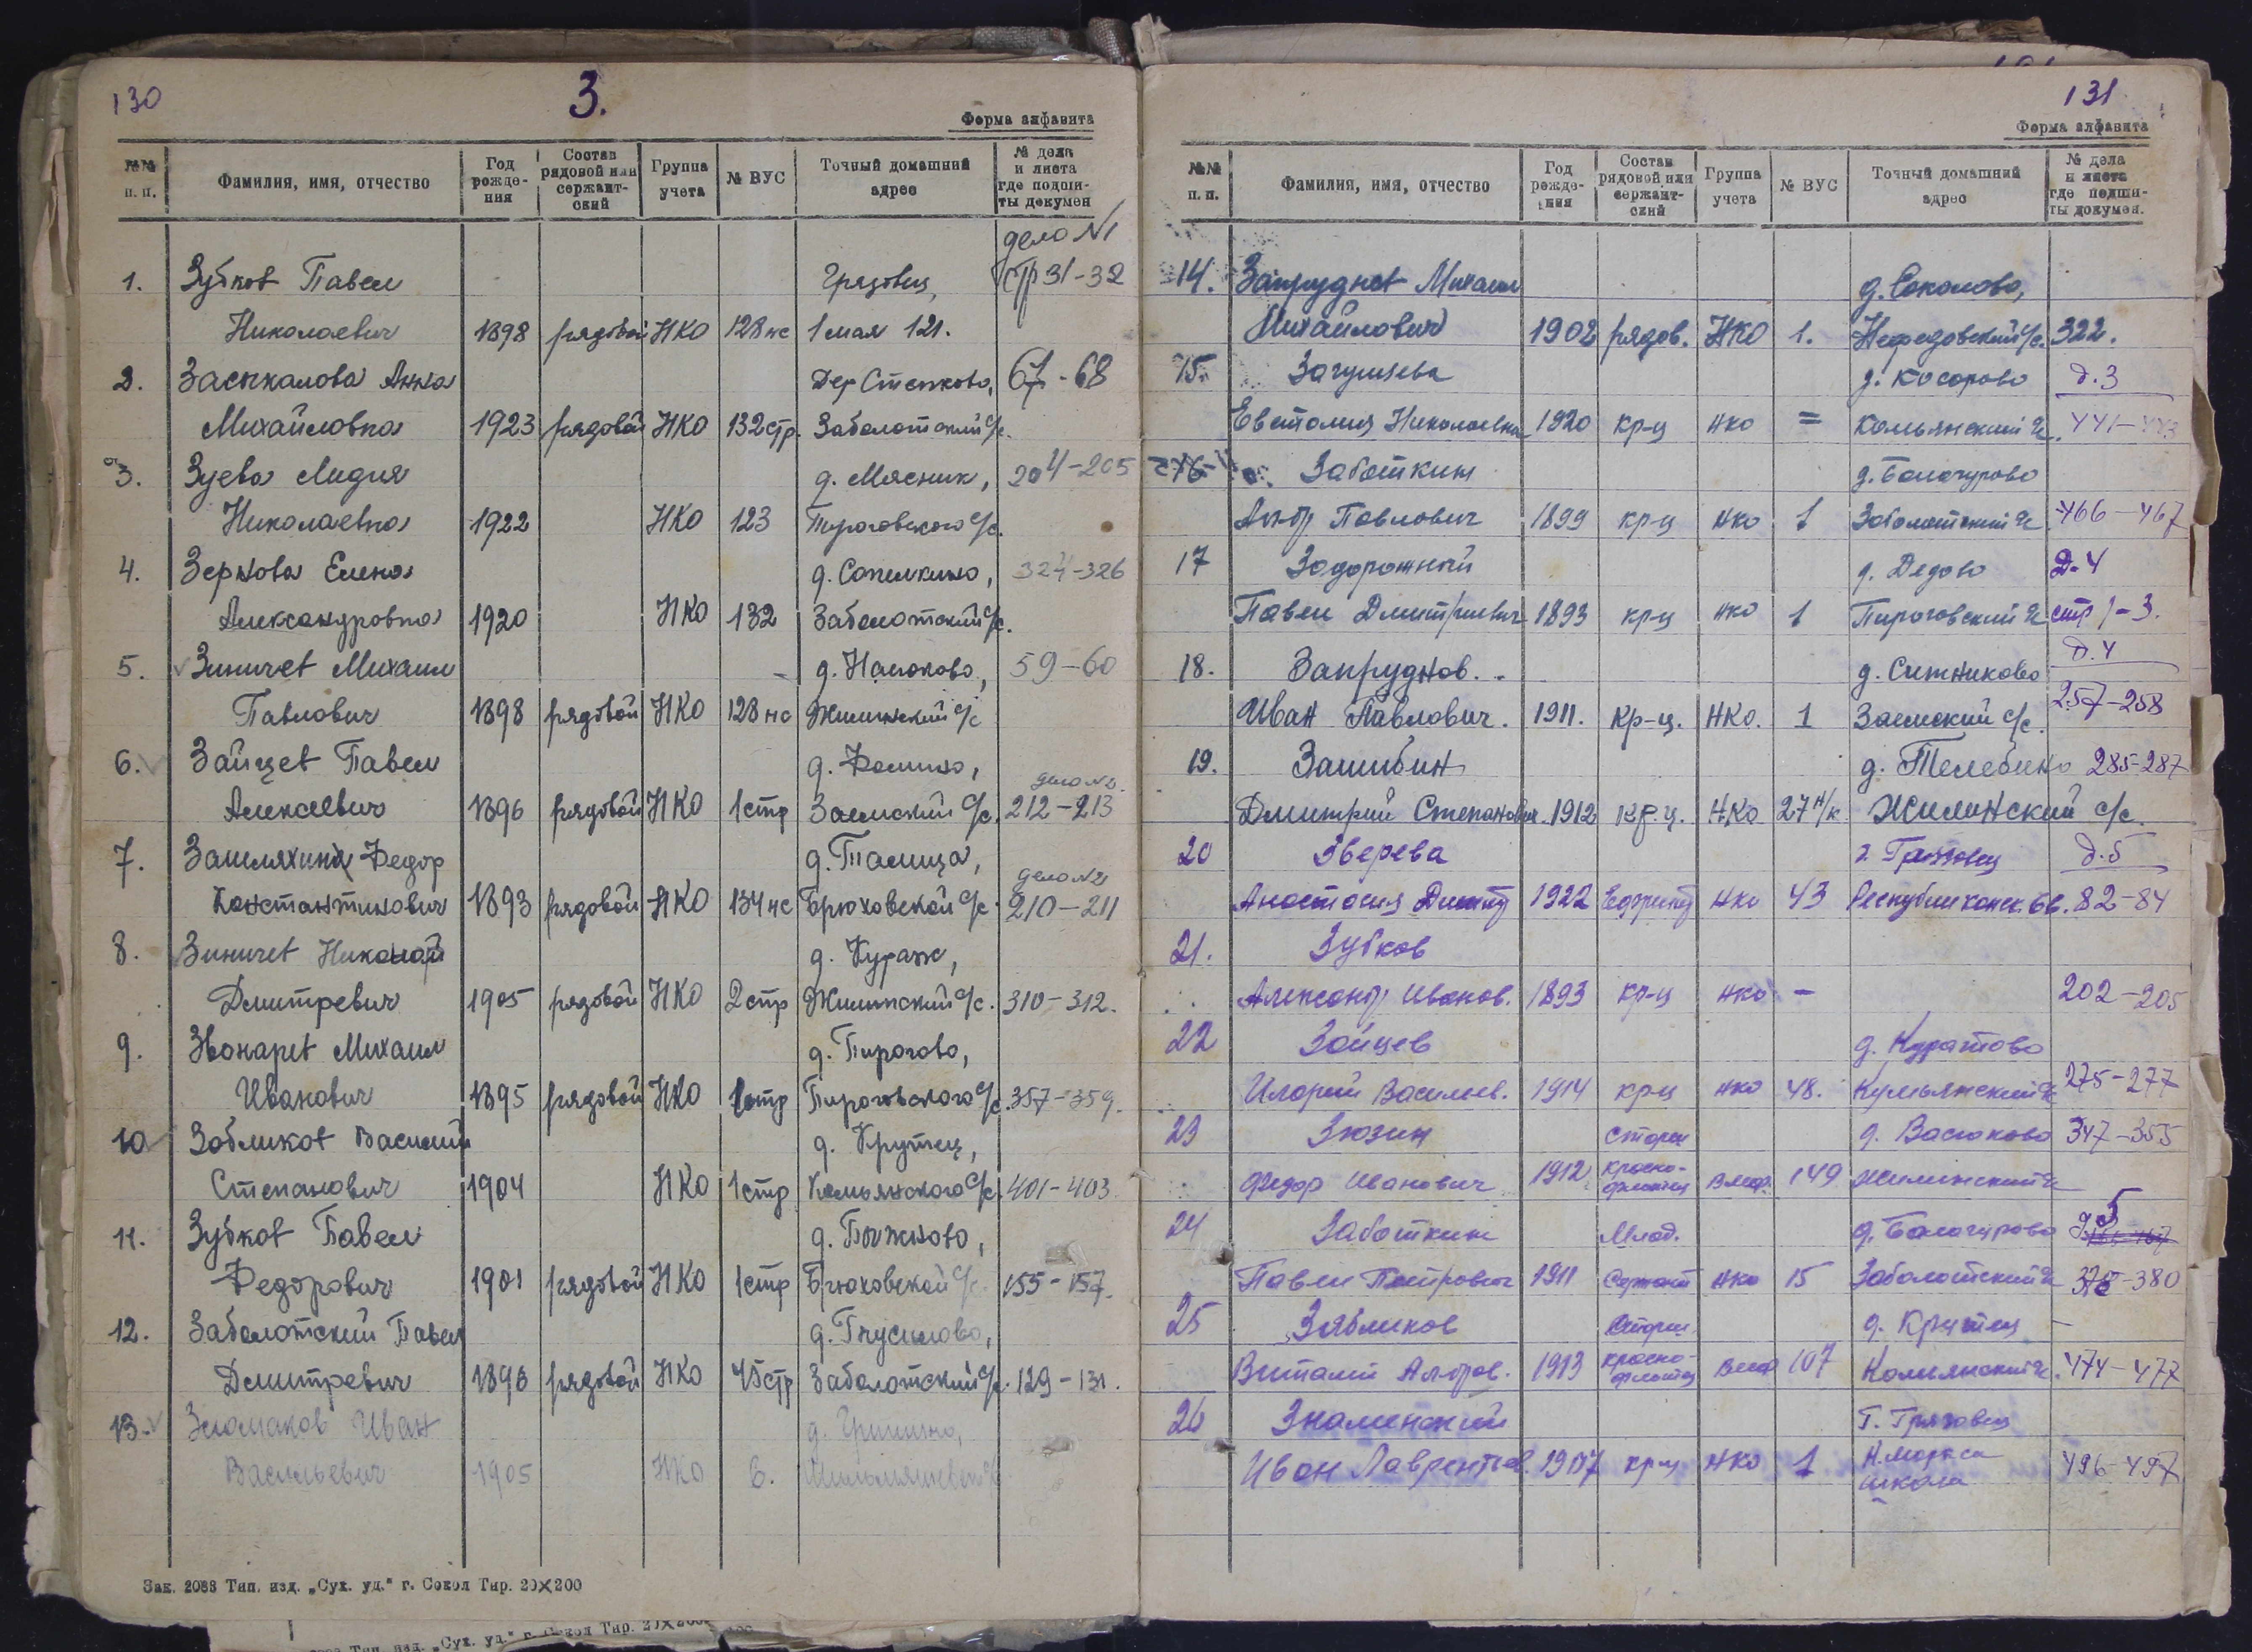 130
3.
Форма алфавита
№№ п. п. Фамилия, имя, отчество Год рожде-ния Состав рядовой или сержант-ский Группа учета № ВУС Точный домашний адрес № дела и листа где подши-ты докумен
дело №1
1. Зубков Павел Грязовец, стр 31-32
Николаевич 1898 рядовой НКО 128 нс 1 мая 121.
2. Засыкалова Анна Дер Степково, 67-68
Михайловна 1923 рядовой НКО 132 стр. Заболотский с/с.
3. Зуева Лидия д. Мясник, 204-205
Николаевна 1922 НКО 123 Пироговского с/с.
4. Зернова Елена д. Сопелкино, 324-326
Александровна 1920 НКО 132 Заболотский с/с.
5. Зиничев Михаил д. Насоково, 59-60
Павлович 1898 рядовой НКО 128 нс Жилинский с/с
6. Зайцев Павел д. Фомино, дело №2.
Алексеевич 1896 рядовой НКО 1 стр Заемский с/с. 212-213
7. Зашляхин Федор д. Талица, дело №2
Константинович 1893 рядовой НКО 134 нс Брюховской с/с. 210-211
8. Зиничев Николай д. Кураж,
Дмитревич 1905 рядовой НКО 2 стр Жилинский с/с. 310-312.
9. Звонарев Михаил д. Пирогово,
Иванович 1895 рядовой НКО 1 стр Пироговского с/с. 357-359.
10 Зобликов Василий д. Крутец,
Степанович 1904 НКО 1 стр Комьянского с/с. 401-403
11. Зубков Павел д. Пыжново,
Федорович 1901 рядовой НКО 1 стр Брюховской с/с. 155-157.
12. Заболотский Павел д. Гнусилово,
Дмитревич 1898 рядовой НКО Заболотский с/с. 129-131.
13. Иван д.
Васильевич 1905 НКО 6.
Зак. 2088 Тип. изд. „Сух. уд.“ г. Сокол Тир. 20×200
131
Форма алфавита
№№ п. п. Фамилия, имя, отчество Год рожде-ния Состав рядовой или сержант-ский Группа учета № ВУС Точный домашний адрес № дела и листа где подши-ты докумен.
14. Запруднов Михаил д. Соколово,
Михайлович 1902 рядов. НКО 1. Нефедовский с/с. 322.
15. Загуляева д. Косарово д. 3
Евстолия Николаевна 1920 кр-ц НКО = Комьянский с/с. 441-443
16 Заботкин д. Балагурово
Ал-др Павлович 1899 кр-ц НКО 1 Заболотский с/с 466-467
17 Задорожный д. Дедово Д-4
Павел Дмитриевич 1893 кр-ц НКО 1 Пироговский с/с стр 1-3.
18. Запруднов. д. Ситниково д. 4
Иван Павлович. 1911. Кр-ц. НКО. 1 Заемский с/с. 257-258
19. Зашибин д. Телебино 285-287
Дмитрий Степанович. 1912 кр.ц. НКО 27 н/к. Жилинский с/с.
20 Зверева г. Грязовец д. 5
Анастасия Дмитр 1922 Ефрейт НКО 43 Республиканск. 6 в. 82-84
21. Зубков
Александр Иванов. 1893 кр-ц НКО - 202-205
22 Зайцев д. Куратово
Иларий Васильев. 1914 кр-ц НКО 48. Комьянский с/с 275-277
23 Зюзин Старш д. Васюково 347-355
Федор Иванович 1912 красно-флотец ВМФ. 149 Жилинский с/с
24 Заботкин Млад. д. Балагурово д 5
Павел Петрович 1911 Сержант НКО 15 Заболотский с/с 378-380
25 Зябликов Старш д. Крутец -
Виталий Ал-дров. 1913 красно-флотец ВМФ 107 Комьянский с/с. 474-477
26 Знаменский Г. Грязовец
Иван Лаврентьев. 1907 кр-ц НКО 1 К. Маркса школа 496-497